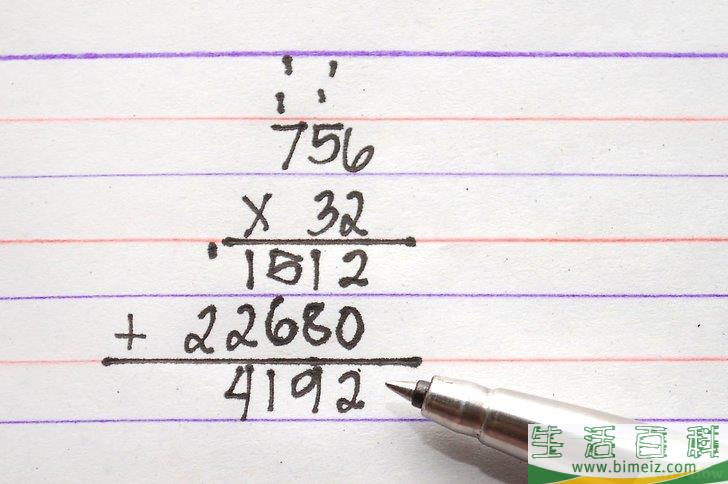 756
X 32
1512
+ 22680
4192
生活百科
www.bimeiz.com